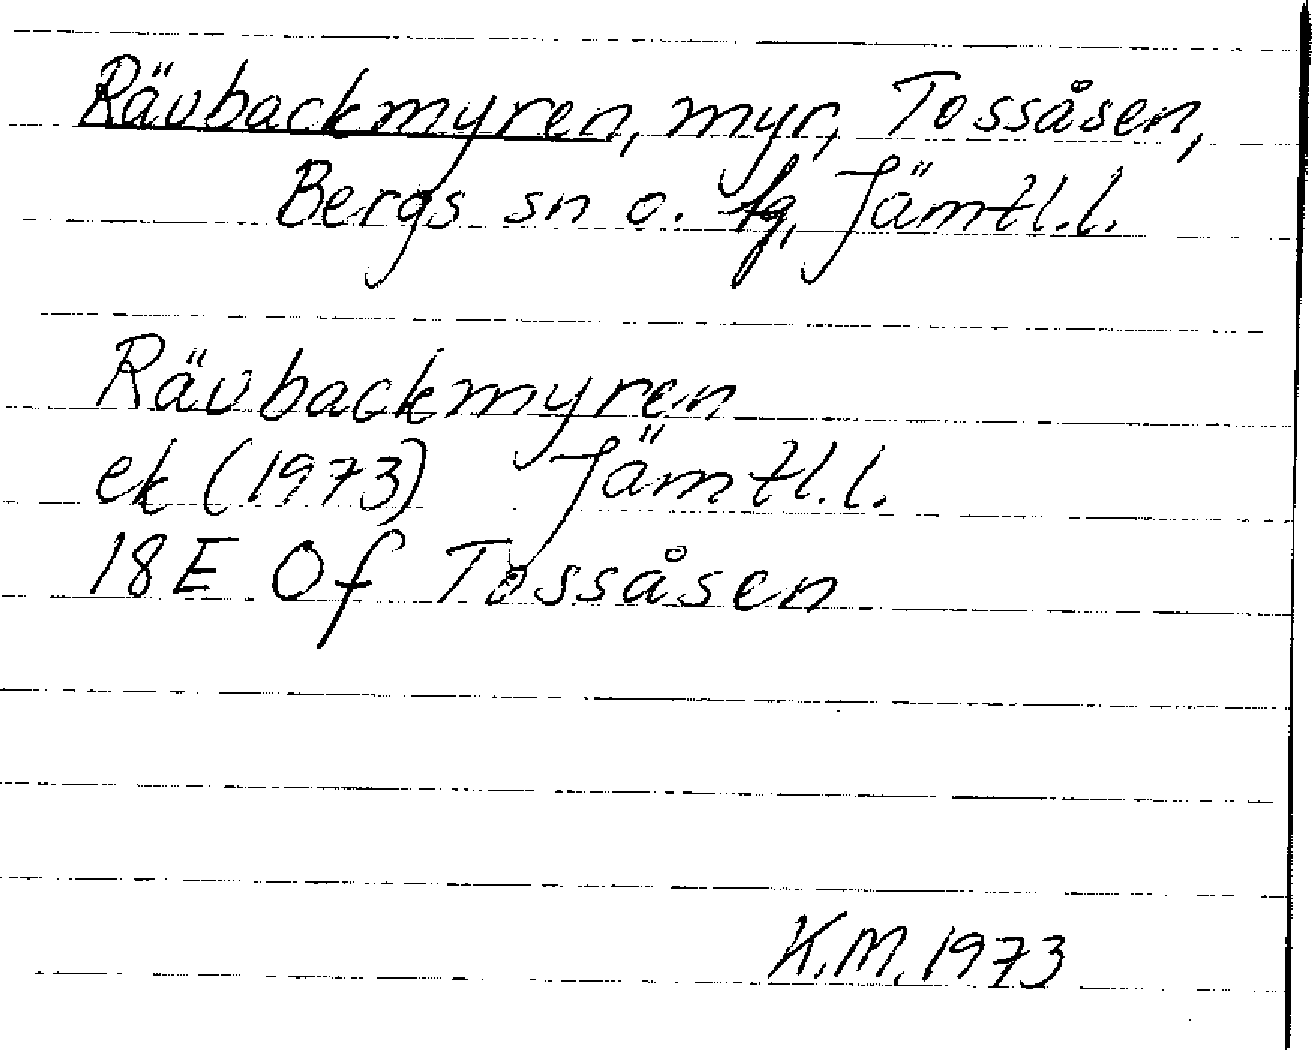 Rävbackmyren, myr, Tossåsen,
Bergs sn o. tg, Jämtl.l.
Rävbackmyren
ek (1973) Jämtl.l.
18E Of Tossåsen
K.M. 1973